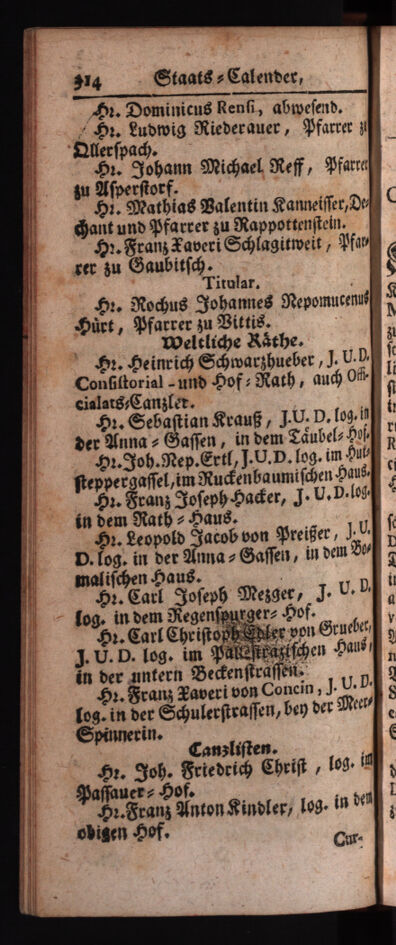 314 Staats-Calender,
Hr. Dominicus Rensi, abwesend.
Hr. Ludwig Riederauer, Pfarrer zu
Ollerspach.
Hr. Johann Michael Reff, Pfarrer
zu Asperstorf.
Hr. Mathias Valentin Kanneisser, De-
chant und Pfarrer zu Rappottenstein.
Hr. Franz Xaveri Schlagitweit, Pfar-
rer zu Gaubitsch.
Titular.
Hr. Rochus Johannes Nepomucenus
Hürt, Pfarrer zu Vittis.
Weltliche Räthe.
Hr. Heinrich Schwarzhueber, J. U. D.
Consistorial-und Hof-Rath, auch Offi-
cialats-Canzler.
Hr. Sebastian Krauß, J. U. D. log. in
der Anna-Gassen, in dem Täubel-Hof.
Hr. Joh. Nep. Ertl, J. U. D. log. im Hut-
steppergassel, im Ruckenbaumischen Haus.
Hr. Franz Joseph Hacker, J. U. D. log.
in dem Rath-Haus.
Hr. Leopold Jacob von Preißer, J. U.
D. log. in der Anna-Gassen, in dem Bo-
malischen Haus.
Hr. Carl Joseph Mezger, J. U. D.
log. in dem Regenspurger-Hof.
Hr. Carl Christoph Edler von Grueber,
J. U. D. log. im Haus,
in der untern Beckenstrassen.
Hr. Franz Xaveri von Concin, J. U. D.
log. in der Schulerstrassen, bey der Meer-
Spinnerin.
Canzlisten.
Hr. Joh. Friedrich Christ, log. im
Passauer-Hof.
Hr. Franz Anton Kindler, log. in dem
obigen Hof.
Cur-